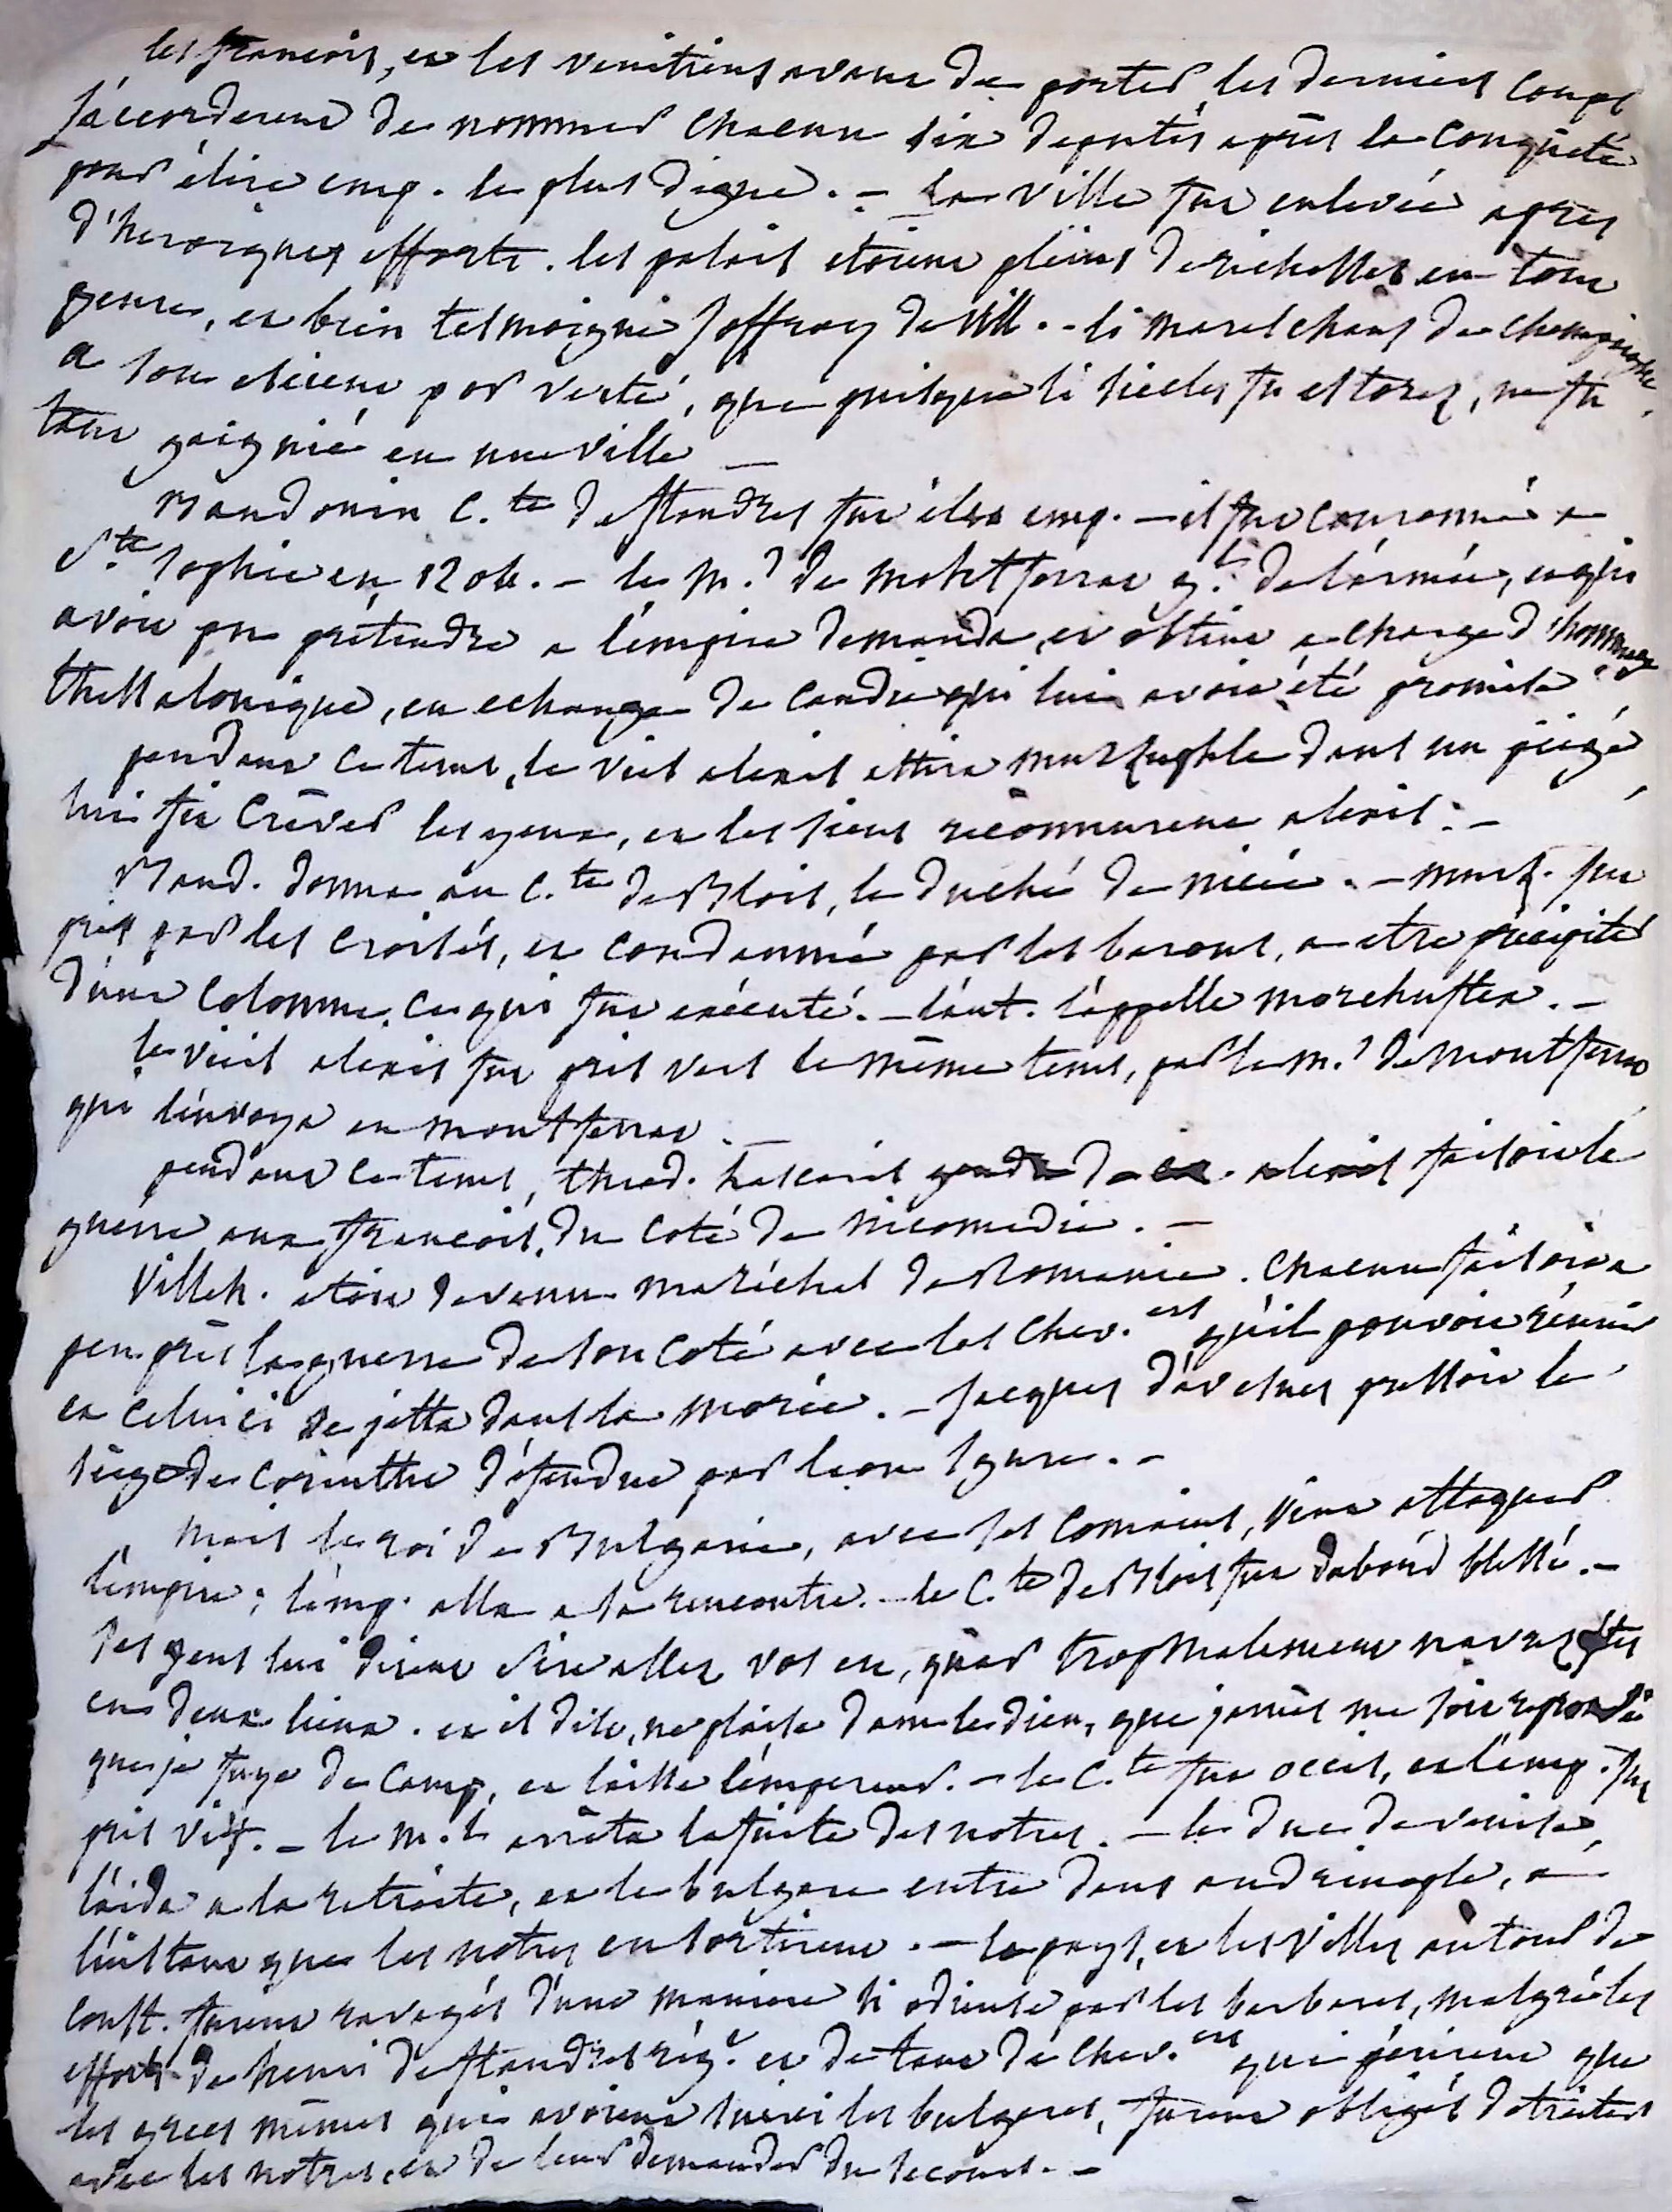 les francois, et les venitiens avant de porter les derniers coups
s'accorderent de nommer chacun six deputés après la conquête
pour élire emp. le plus digne. - La ville fut enlevée après
d'heroiques efforts. les palais etoient pleins de richesses en tout
genre, et bien tesmoigne Joffroy de Vill. - li mareschaus de champaigne,
a son escient por verté, que puisque li siecles fu estorez, ne fu
tant gaignié en une ville —
Baudouin C.te de flandres fut élu emp. - il fut couronné a
S.te Sophie en 1204. - le M.s de montferrat g.l de l'armée, et qui
avoit pu prétendre a l'empire demanda, et obtint a charge d'hommage
thessalonique, en echange de Candie qui lui avoit été promise.
pendant ce tems, le vieil alexis attira murzuphle dans un piége
lui fit crêver les yeux, et les siens reconnurent alexis. -
Baud. donna au C.te de Blois, le duché de nicée. - murz. fut
pris par les croisés, et condamné par les barons, a etre précipité
d'une colonne, ce qui fut exécuté. - l'aut. l'appelle morchuflex. -
le vieil alexis fut pris vers le même tems, par le m.s de montferrat
qui l'envoya en montferrat. -
pendant ce tems, theod. Lascaris gendre de alexis faisoit la
guerre aux francois, du coté de nicomedie. -
Villeh. etoit devenu maréchal de Romanie. Chacun faisoit a
peu près la guerre de son coté avec les chev.ers qu'il pouvoit réunir
et celui ci se jetta dans la morée. - Jacques d'avesnes pressoit le
siége de Corinthe défendue par leon Sgure. -
mais le roi de Bulgarie, avec ses comains, vint attaquer
l'empire; l'emp. alla a sa rencontre. - le C.te de Blois fut dabord blessé. -
ses gens lui dirent Sire allez vos en, quar trop malement navrez êtes
en deux lieux. et il dist, ne plaise dam le dieu, que jamès me soit reprondé
que je fuye de camp, et laisse l'empereur. - le C.te fut occis, et l'emp. fut
pris vif. - le m.l arrêta la fuite des notres. - le duc de venise,
l'aida a la retraite, et le bulgare entre dans andrinople, a
l'instant que les notres en sortirent. - le pays, et les villes autour de
const. furent ravagés d'une maniere si odieuse par les barbares, malgré les
efforts de henri de flandres rég.t et de tant de chev.ers qui périrent que
les grecs mêmes qui avoient suivi les bulgares, furent obligés de traiter
avec les notres, et de leur demander du secours. -